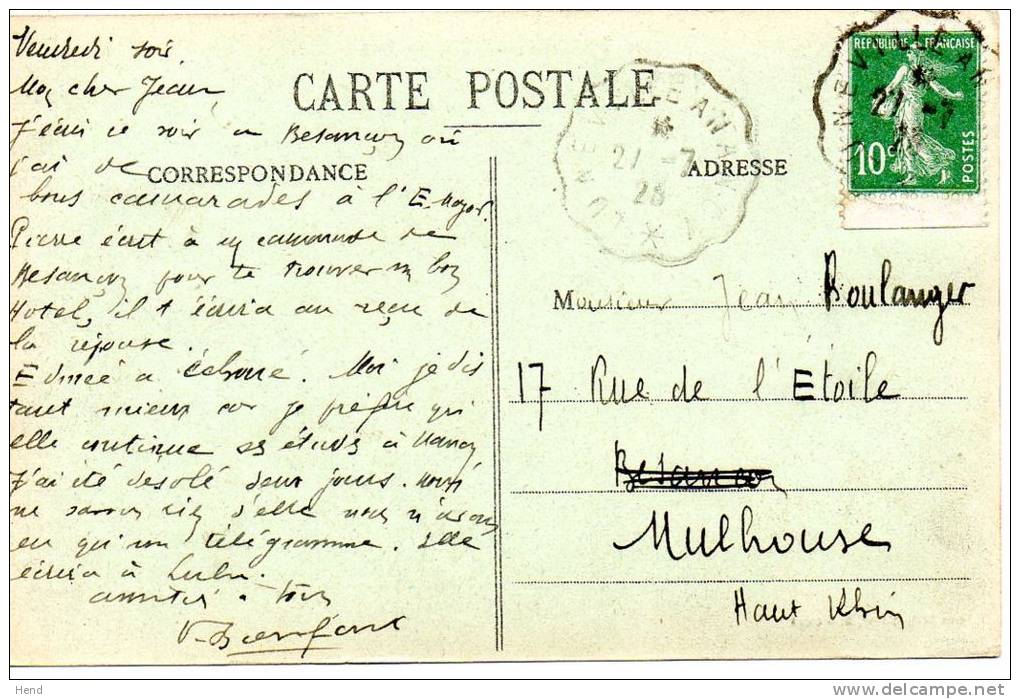 Vendredi soir
Mon cher Jean
J'écris ce soir a Besançon où
j'ai de
bons camarades à l'E. Major.
Pierre écrit à un camarade de
Besançon pour te trouver un bon
Hotel, il t'écrira au reçu de
la réponse.
Edmée a échoué. Moi je dis
tant mieux car je préfère qu'
elle continue ses études à Nancy
J'ai été désolé deux jours. nous
ne savons rien d'elle nous n'avons
eu qu'un télégramme. Elle
écrira à Lulu.
amitiés à tous
CARTE POSTALE
CORRESPONDANCE
ADRESSE
27 - 7
REPUBLIQUE FRANÇAISE
10c
POSTES
27 - 7
Monsieur Jean Boulanger
17 Rue de l'Etoile
Besancon
Mulhouse
Haut Rhin
Hend
www.delcampe.net